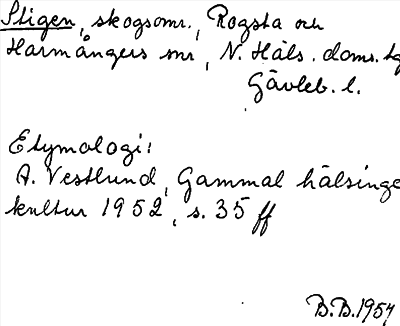 Stigen, skogsomr., Rogsta och
Harmångers snr, N. Häls. doms. tg
Gävleb. l.
Etymologi:
A. Vestlund, Gammal hälsinge
kultur 1952, s. 35 ff
B.B. 1957